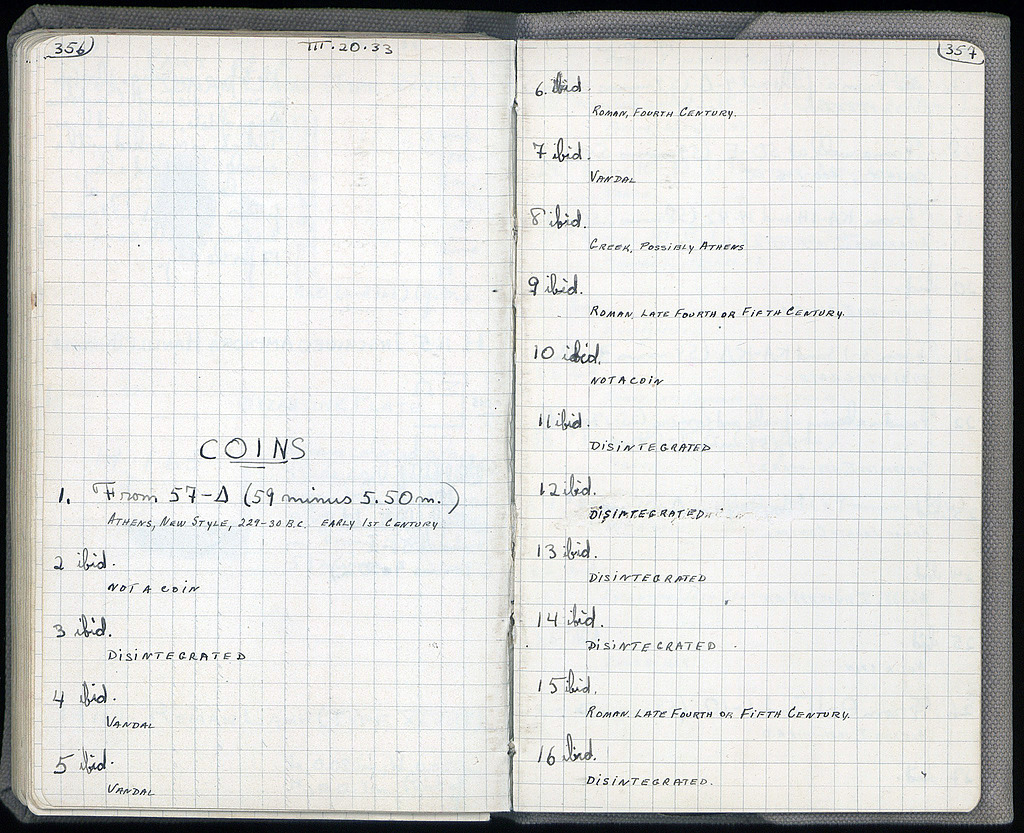 356
III.20.33
COINS
1. From 57-Δ (59 minus 5.50m.)
ATHENS, NEW STYLE, 229-30 B.C. EARLY 1ST CENTURY
2 ibid.
NOT A COIN
3 ibid.
DISINTEGRATED
4 ibid.
VANDAL
5 ibid.
VANDAL
357
6. ibid.
ROMAN, FOURTH CENTURY.
7 ibid.
VANDAL
8 ibid.
GREEK, POSSIBLY ATHENS
9 ibid.
ROMAN, LATE FOURTH OR FIFTH CENTURY.
10 ibid.
NOT A COIN
11 ibid.
DISINTEGRATED
12 ibid.
DISINTEGRATED
13 ibid.
DISINTEGRATED
14 ibid.
DISINTEGRATED
15 ibid.
ROMAN. LATE FOURTH OR FIFTH CENTURY.
16 ibid.
DISINTEGRATED.